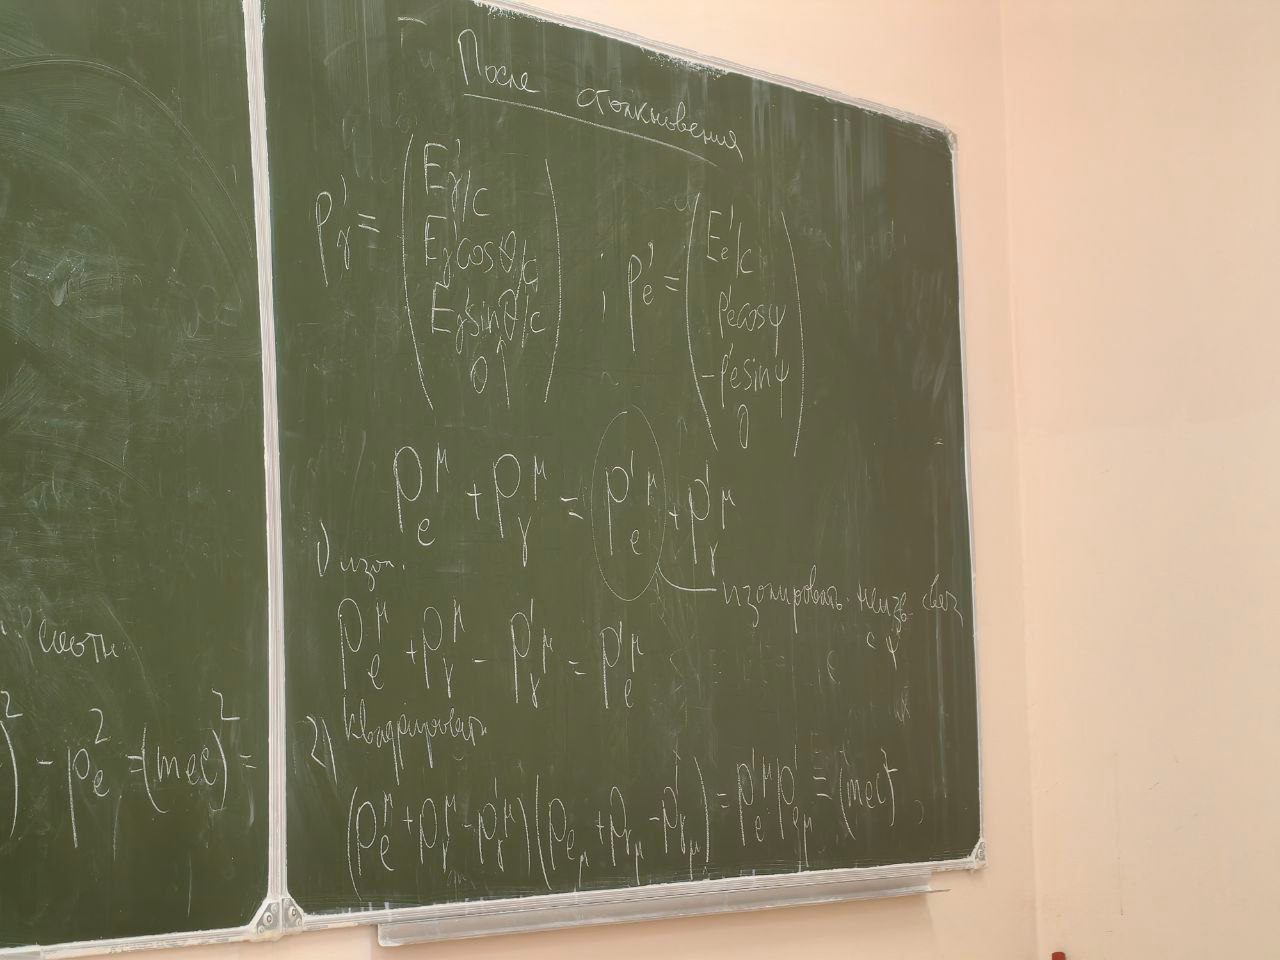 После столкновения
p'_γ = ( E'_γ/c ; E'_γ cosθ/c ; E'_γ sinθ/c ; 0 ) ; p'_e = ( E'_e/c ; p'_e cosψ ; -p'_e sinψ ; 0 )
p_e^μ + p_γ^μ = p'_e^μ + p'_γ^μ
1) изол.
изолировать неизв.
с ψ
p_e^μ + p_γ^μ - p'_γ^μ = p'_e^μ
2) квадрировать
(p_e^μ + p_γ^μ - p'_γ^μ)(p_eμ + p_γμ - p'_γμ) = p'_e^μ p'_eμ ≡ (mec)^2,
)^2 - p_e^2 = (mec)^2 =